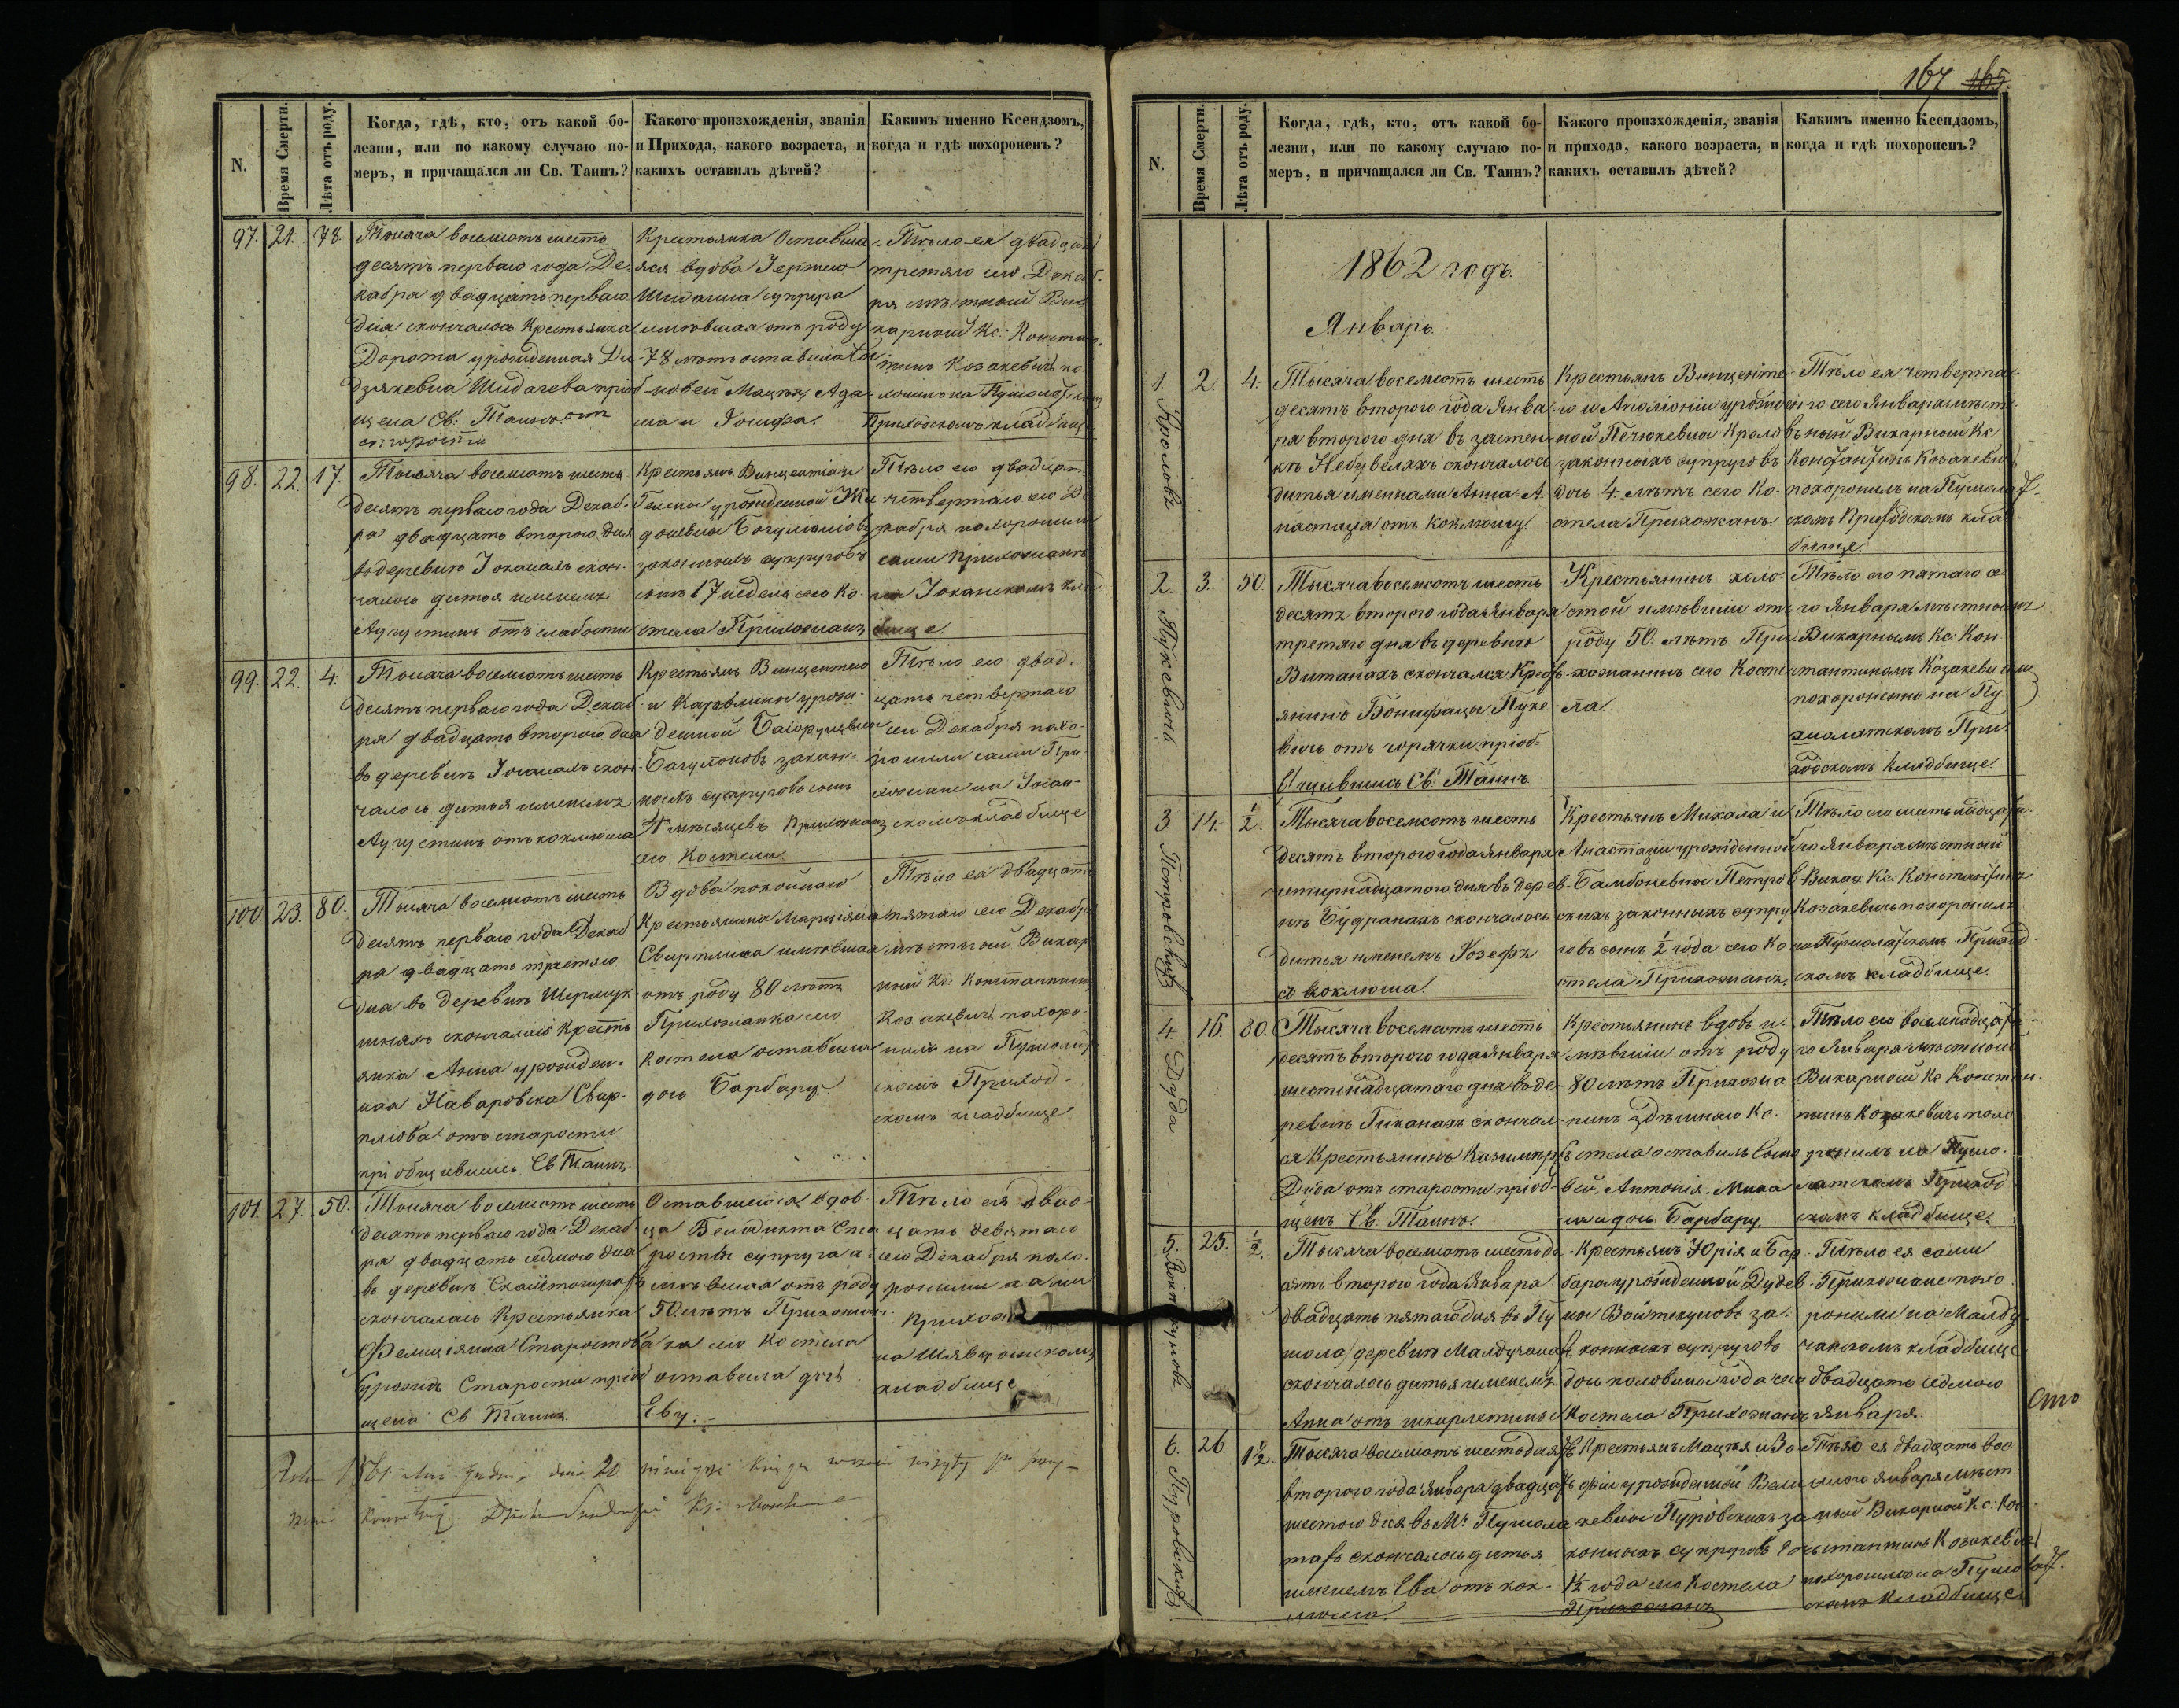 167 165.
N.
Время Смерти.
Лѣта отъ роду.
Когда, гдѣ, кто, отъ какой бо-
лезни, или по какому случаю по-
меръ, и причащался ли Св. Таинъ?
Какого произхожденія, званія
и Прихода, какого возраста, и
какихъ оставилъ дѣтей?
Какимъ именно Ксендзомъ,
когда и гдѣ похороненъ?
97. 21. 78.
Тысяча восемсотъ шесть
десятъ перваго года Де-
кабря двадцать перваго
дня скончалась Крестьянка
Дорота урожденная
Шидагева приоб
щена Св: Таинъ отъ
старости
Крестьянка Оставша
яся вдова
Шидагиса супруга
имѣвшая отъ роду
78 лѣтъ оставила Сы
новей Мацѣя, Ада
ма и Іосифа.
Тѣло ея двадцать
третяго сего Декаб-
ря мѣстный Ви
карный Кс: Констан
тинъ Козакевичъ по
хоронилъ на Пушолат
Приходскомъ кладбище
98. 22. 17.
Тысяча восемсотъ шесть
десятъ перваго года Декаб-
ря двадцать второго дня
въ деревнѣ Іоканахъ скон-
чалось дитья именемъ
Аугустинъ отъ слабости
Крестьянъ Винцентія и
Гелены урожденной
законныхъ супруговъ
сынъ 17 недель сего Ко-
стела Прихожанъ
Тѣло его двадцать
четвертаго сего Де
кабря похоронили
сами Прихожане
на Іоканскомъ клад
бище.
99. 22. 4.
Тысяча восемсотъ шесть
десятъ перваго года Декаб-
ря двадцать второго дня
въ деревнѣ Іоканахъ скон-
чалось дитья именемъ
Аугустинъ отъ коклюша
Крестьянъ Винцентего
и Каролины урож-
денной
закон-
ныхъ супруговъ сынъ
4 мѣсяцевъ Прихожанъ
сего Костела.
Тѣло его двад-
цать четвертаго
сего Декабря похо-
ронили сами При
хожане на Іокан-
скомъ кладбище
100. 23. 80.
Тысяча восемсотъ шесть
десятъ перваго года Декаб
ря двадцать третяго
дня въ деревнѣ
скончалась Кресть
янка Анна урожден-
ная Наваровска Свир-
плюва отъ старости
приобщившись Св Таинъ.
Вдова покойнаго
Крестьянина Марціяна
Свирплиса имѣвшая
отъ роду 80 лѣтъ
Прихожанка сего
Костела оставила
дочь Барбару.
Тѣло ея двадцать
пятаго сего Декабря
мѣстный Викар
ный Кс: Константинъ
Козакевичъ похоро-
нилъ на Пушолат
скомъ Приход-
скомъ кладбище
101. 27. 50.
Тысяча восемсотъ шесть
десятъ перваго года Декаб
ря двадцать седмого дня
въ деревнѣ
скончалась Крестьянка
Фелиціяна Старостова
урожд: Старости приоб
щена Св Таинъ.
Оставшегося вдов
ца Бенидикта Ста
рости супруга и-
мѣвшая отъ роду
50 лѣтъ Прихожан-
ка сего Костела
оставила дочь
Еву.
Тѣло ея двад-
цать девятаго
сего Декабря похо-
ронили сами
Прихожане
на
кладбище
N.
Время Смерти.
Лѣта отъ роду.
Когда, гдѣ, кто, отъ какой бо-
лезни, или по какому случаю по-
меръ, и причащался ли Св. Таинъ?
Какого произхожденія, званія
и прихода, какого возраста, и
какихъ оставилъ дѣтей?
Какимъ именно Ксендзомъ,
когда и гдѣ похороненъ?
1862 годъ.
Январь.
1. 2. 4.
Кроловъ
Тысяча восемсотъ шесть
десятъ второго года Янва-
ря второго дня въ застен-
кѣ Небувеляхъ скончалось
дитья именами Анна-А
настація отъ коклюшу.
Крестьянъ Винценте-
го и Аполіоніи урожден
ной Печюкевны Кролов
законныхъ супруговъ
дочь 4 лѣтъ сего Ко-
стела Прихожанъ.
Тѣло ея четверта-
го сего Января мѣст-
ный Викарный Кс
Константинъ Козакевичъ
похоронилъ на Пушолат-
скомъ Приходскомъ клад
бище.
2. 3. 50.
Пукевичъ
Тысяча восемсотъ шесть
десятъ второго года Января
третяго дня въ деревнѣ
Витанахъ скончался Кресть-
янинъ Бонифацы Пуке
вичъ отъ горячки приоб-
щившись Св: Таинъ.
Крестьянинъ холо-
стой имѣвши отъ
роду 50 лѣтъ При-
хожанинъ сего Косте
ла.
Тѣло его пятаго се
го Января мѣстнымъ
Викарнымъ Кс: Кон
стантиномъ Козакевичемъ
похоронено на Пу
шолатскомъ При
ходскомъ Кладбище.
3. 14. ½.
Петровскихъ
Тысяча восемсотъ шесть
десятъ второго года Января
четырнадцатого дня въ дерев-
нѣ Будранахъ скончалось
дитья именемъ Іозефъ
съ коклюша.
Крестьянъ Михала и
Анастазіи урожденной
Бамбоневны Петров
скихъ законныхъ супру
говъ сынъ ½ года сего Ко
стела Прихожанъ.
Тѣло его шестьнадцата-
го Января мѣстный
Викар: Кс: Константинъ
Козакевичъ похоронилъ
на Пушолатскомъ Приход-
скомъ кладбище.
4. 16. 80.
Дуда
Тысяча восемсотъ шесть
десятъ второго года Января
шестнадцатаго дня въ де-
ревнѣ Гиканахъ скончал-
ся Крестьянинъ Казимиръ
Дуда отъ старости приоб-
щенъ Св: Таинъ.
Крестьянинъ вдовъ и-
мѣвши отъ роду
80 лѣтъ Прихожа
нинъ здѣшняго Ко-
стела оставилъ Сыно
вей, Антонія, Миха
ла и дочь Барбару.
Тѣло его восмнадцата-
го Января мѣстный
Викарной Кс Констан-
тинъ Козакевичъ похо
ронилъ на Пушо-
латскомъ Приход
скомъ кладбище.
5. 25. ½.
Тысяча восемсотъ шестьде
сятъ второго года Января
двадцать пятаго дня въ Пу
шола/ деревнѣ Малдучанахъ
скончалось дитья именемъ
Анна отъ шкарлетины
Крестьянъ Юрія и Бар-
бары урожденной Дудев-
ны Войткуновъ за-
конныхъ супруговъ
дочь половина года сего
Костела Прихожанъ
Тѣло ея сами
Прихожане похо
ронили на Малду
чанскомъ кладбище
двадцать седмого
Января.
6. 26. 1½.
Пуровскихъ
Тысяча восемсотъ шестьдесятъ
второго года Января двадцать
шестого дня въ М: Пушола
тахъ скончалось дитья
именемъ Ева отъ кок-
люша.
Крестьянъ Мацѣя и Зо
фіи урожденной Вели
кевны Пуровскихъ за
конныхъ супруговъ дочь
1½ года сего Костела
Прихожанъ
Тѣло ея двадцать вос
мого Января мѣст
ный Викарной Кс: Кон-
стантинъ Козакевичъ
похоронилъ на Пушолат-
скомъ Кладбище